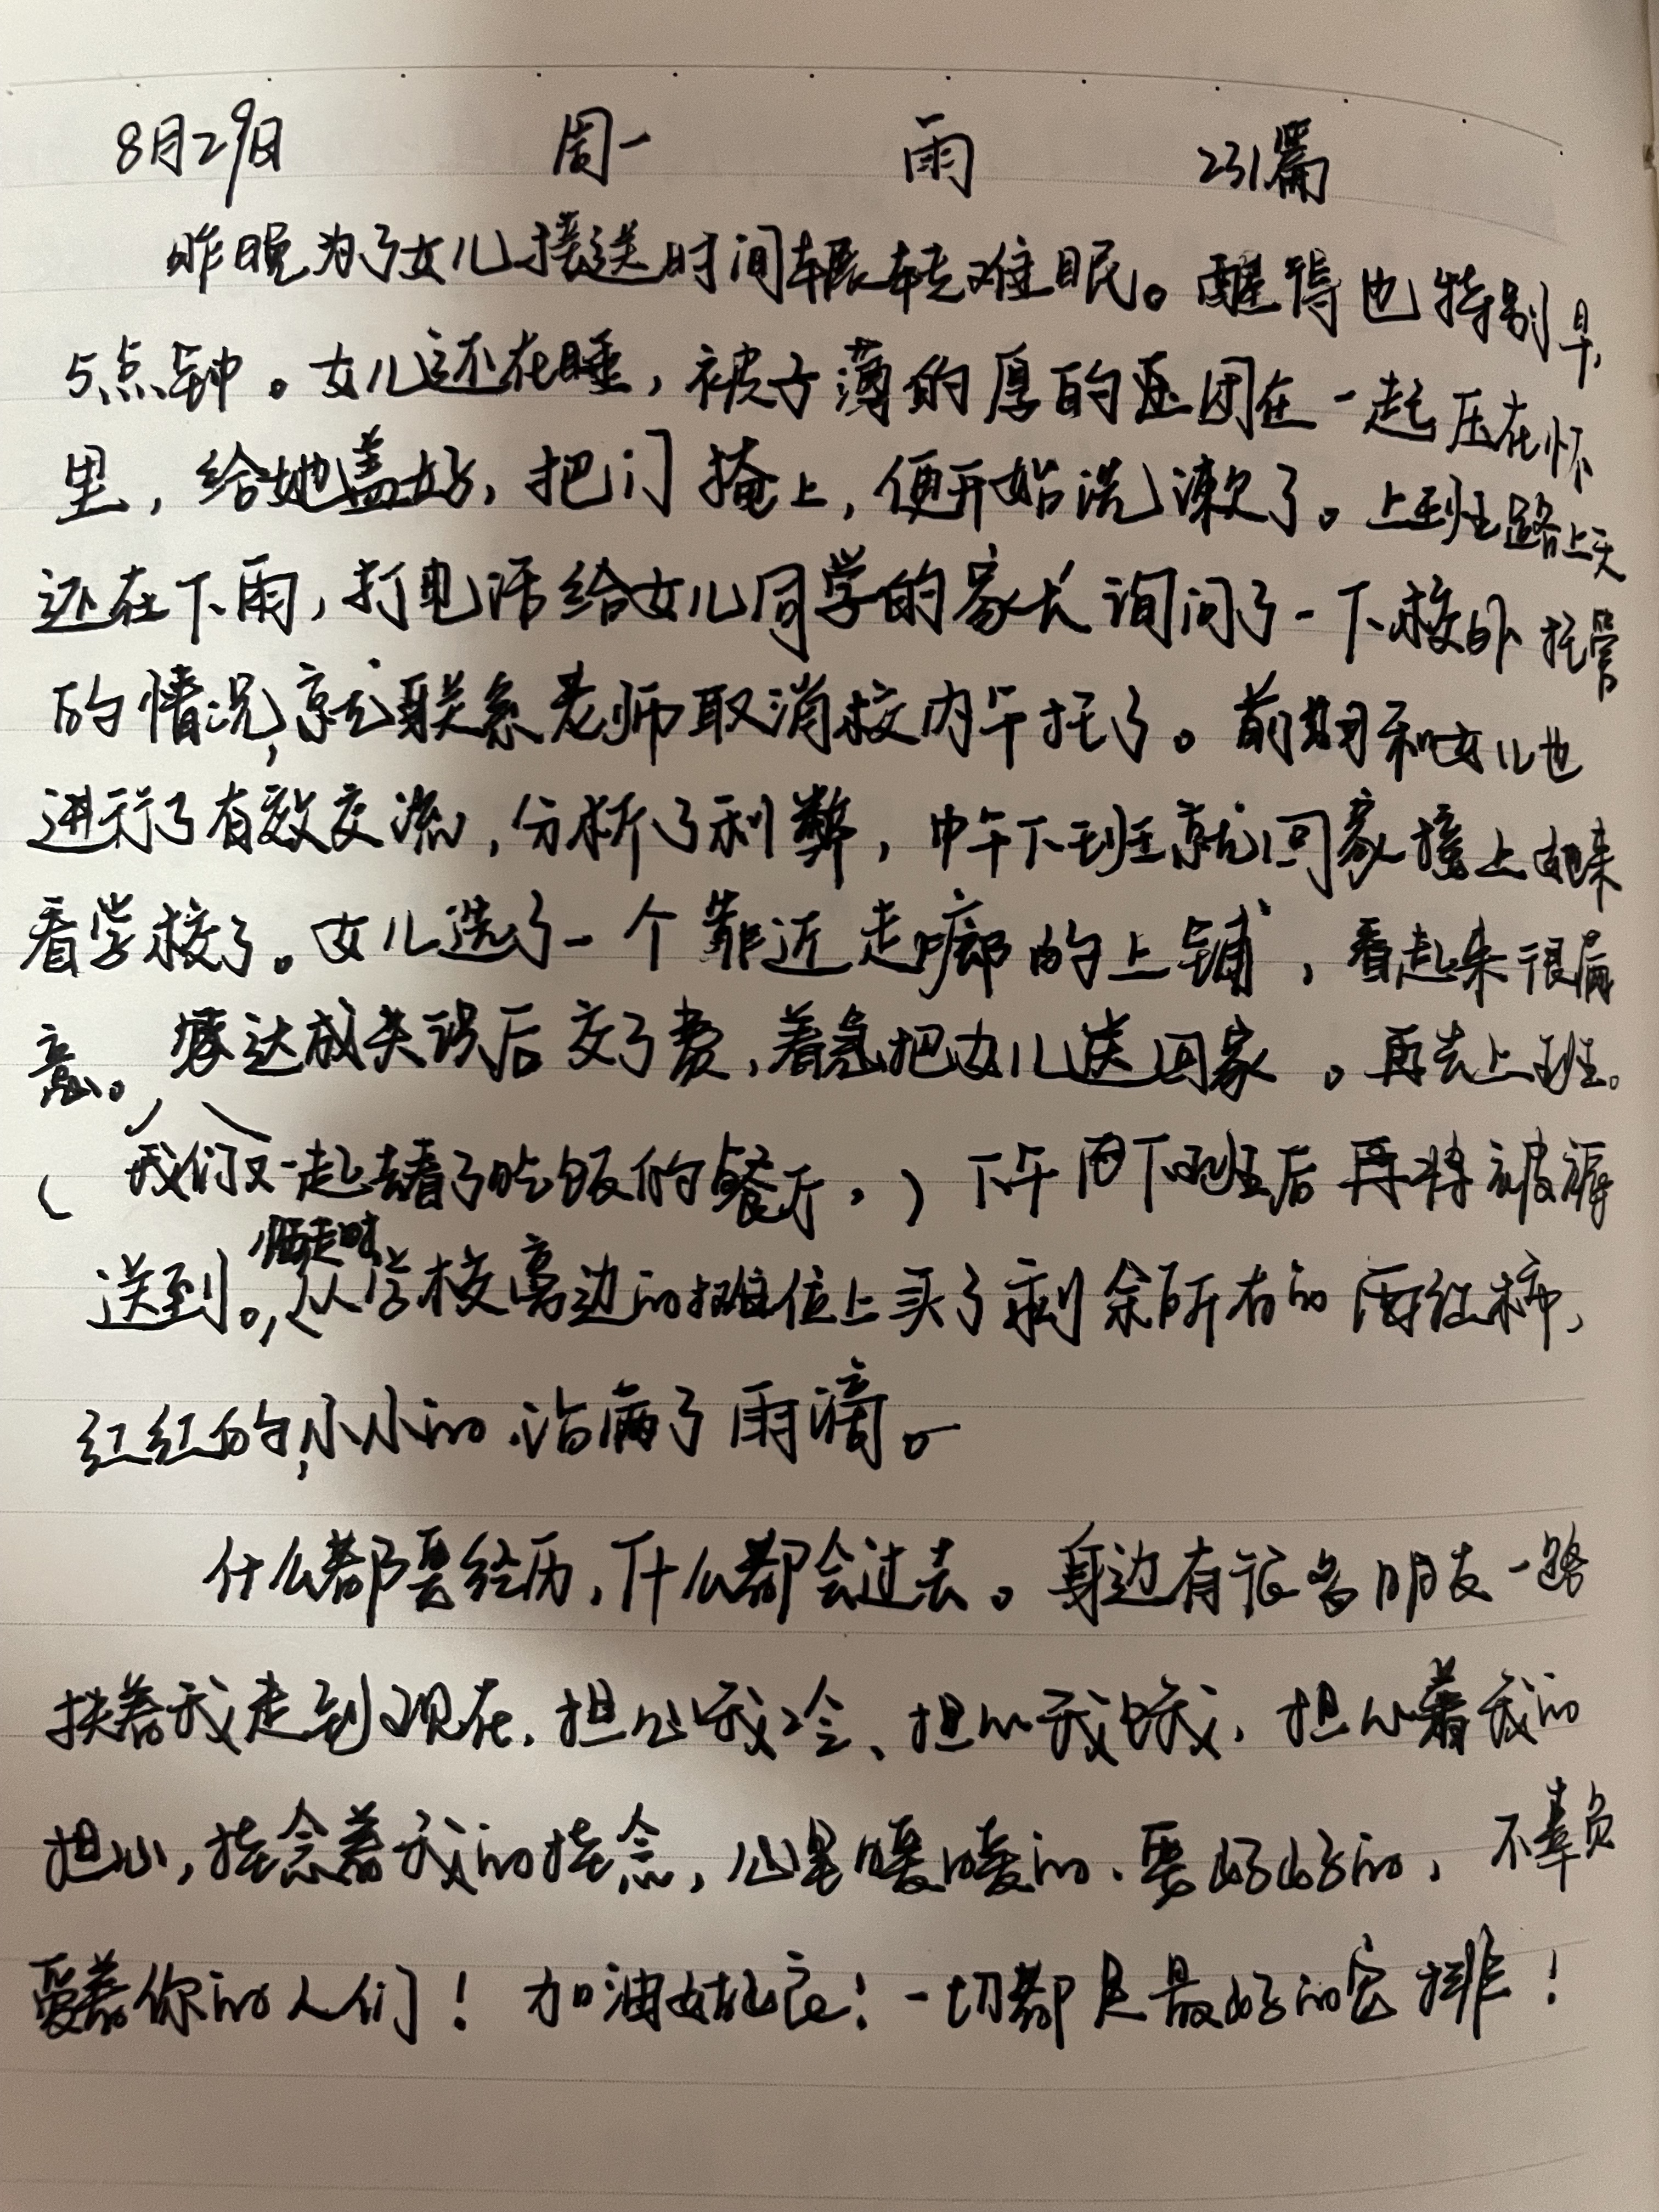 8月29日 周一 雨 231篇
昨晚为了女儿接送时间辗转难眠。醒得也特别早,
5点钟。女儿还在睡,被子薄的厚的还团在一起压在怀
里,给她盖好,把门掩上,便开始洗漱了。上班路上天
还在下雨,打电话给女儿同学的家长询问了一下校外托管
的情况,就联系老师取消校内午托了。前期和女儿也
进行了有效交流,分析了利弊,中午下班就回家接上她来
看学校了。女儿选了一个靠近走廊的上铺,看起来很满
意。达成共识后交了费,着急把女儿送回家。再去上班。
(我们又一起去看了吃饭的餐厅,)下午下班后再将被褥
送到。临走时,从学校旁边的摊位上买了剩余所有的西红柿,
红红的,小小的.沾满了雨滴。
什么都要经历,什么都会过去。身边有很多朋友一路
扶着我走到现在,担心我冷、担心我饿,担心着我的
担心,挂念着我的挂念,心里暖暖的、要好好的,不辜负
爱着你的人们!加油!一切都是最好的安排!